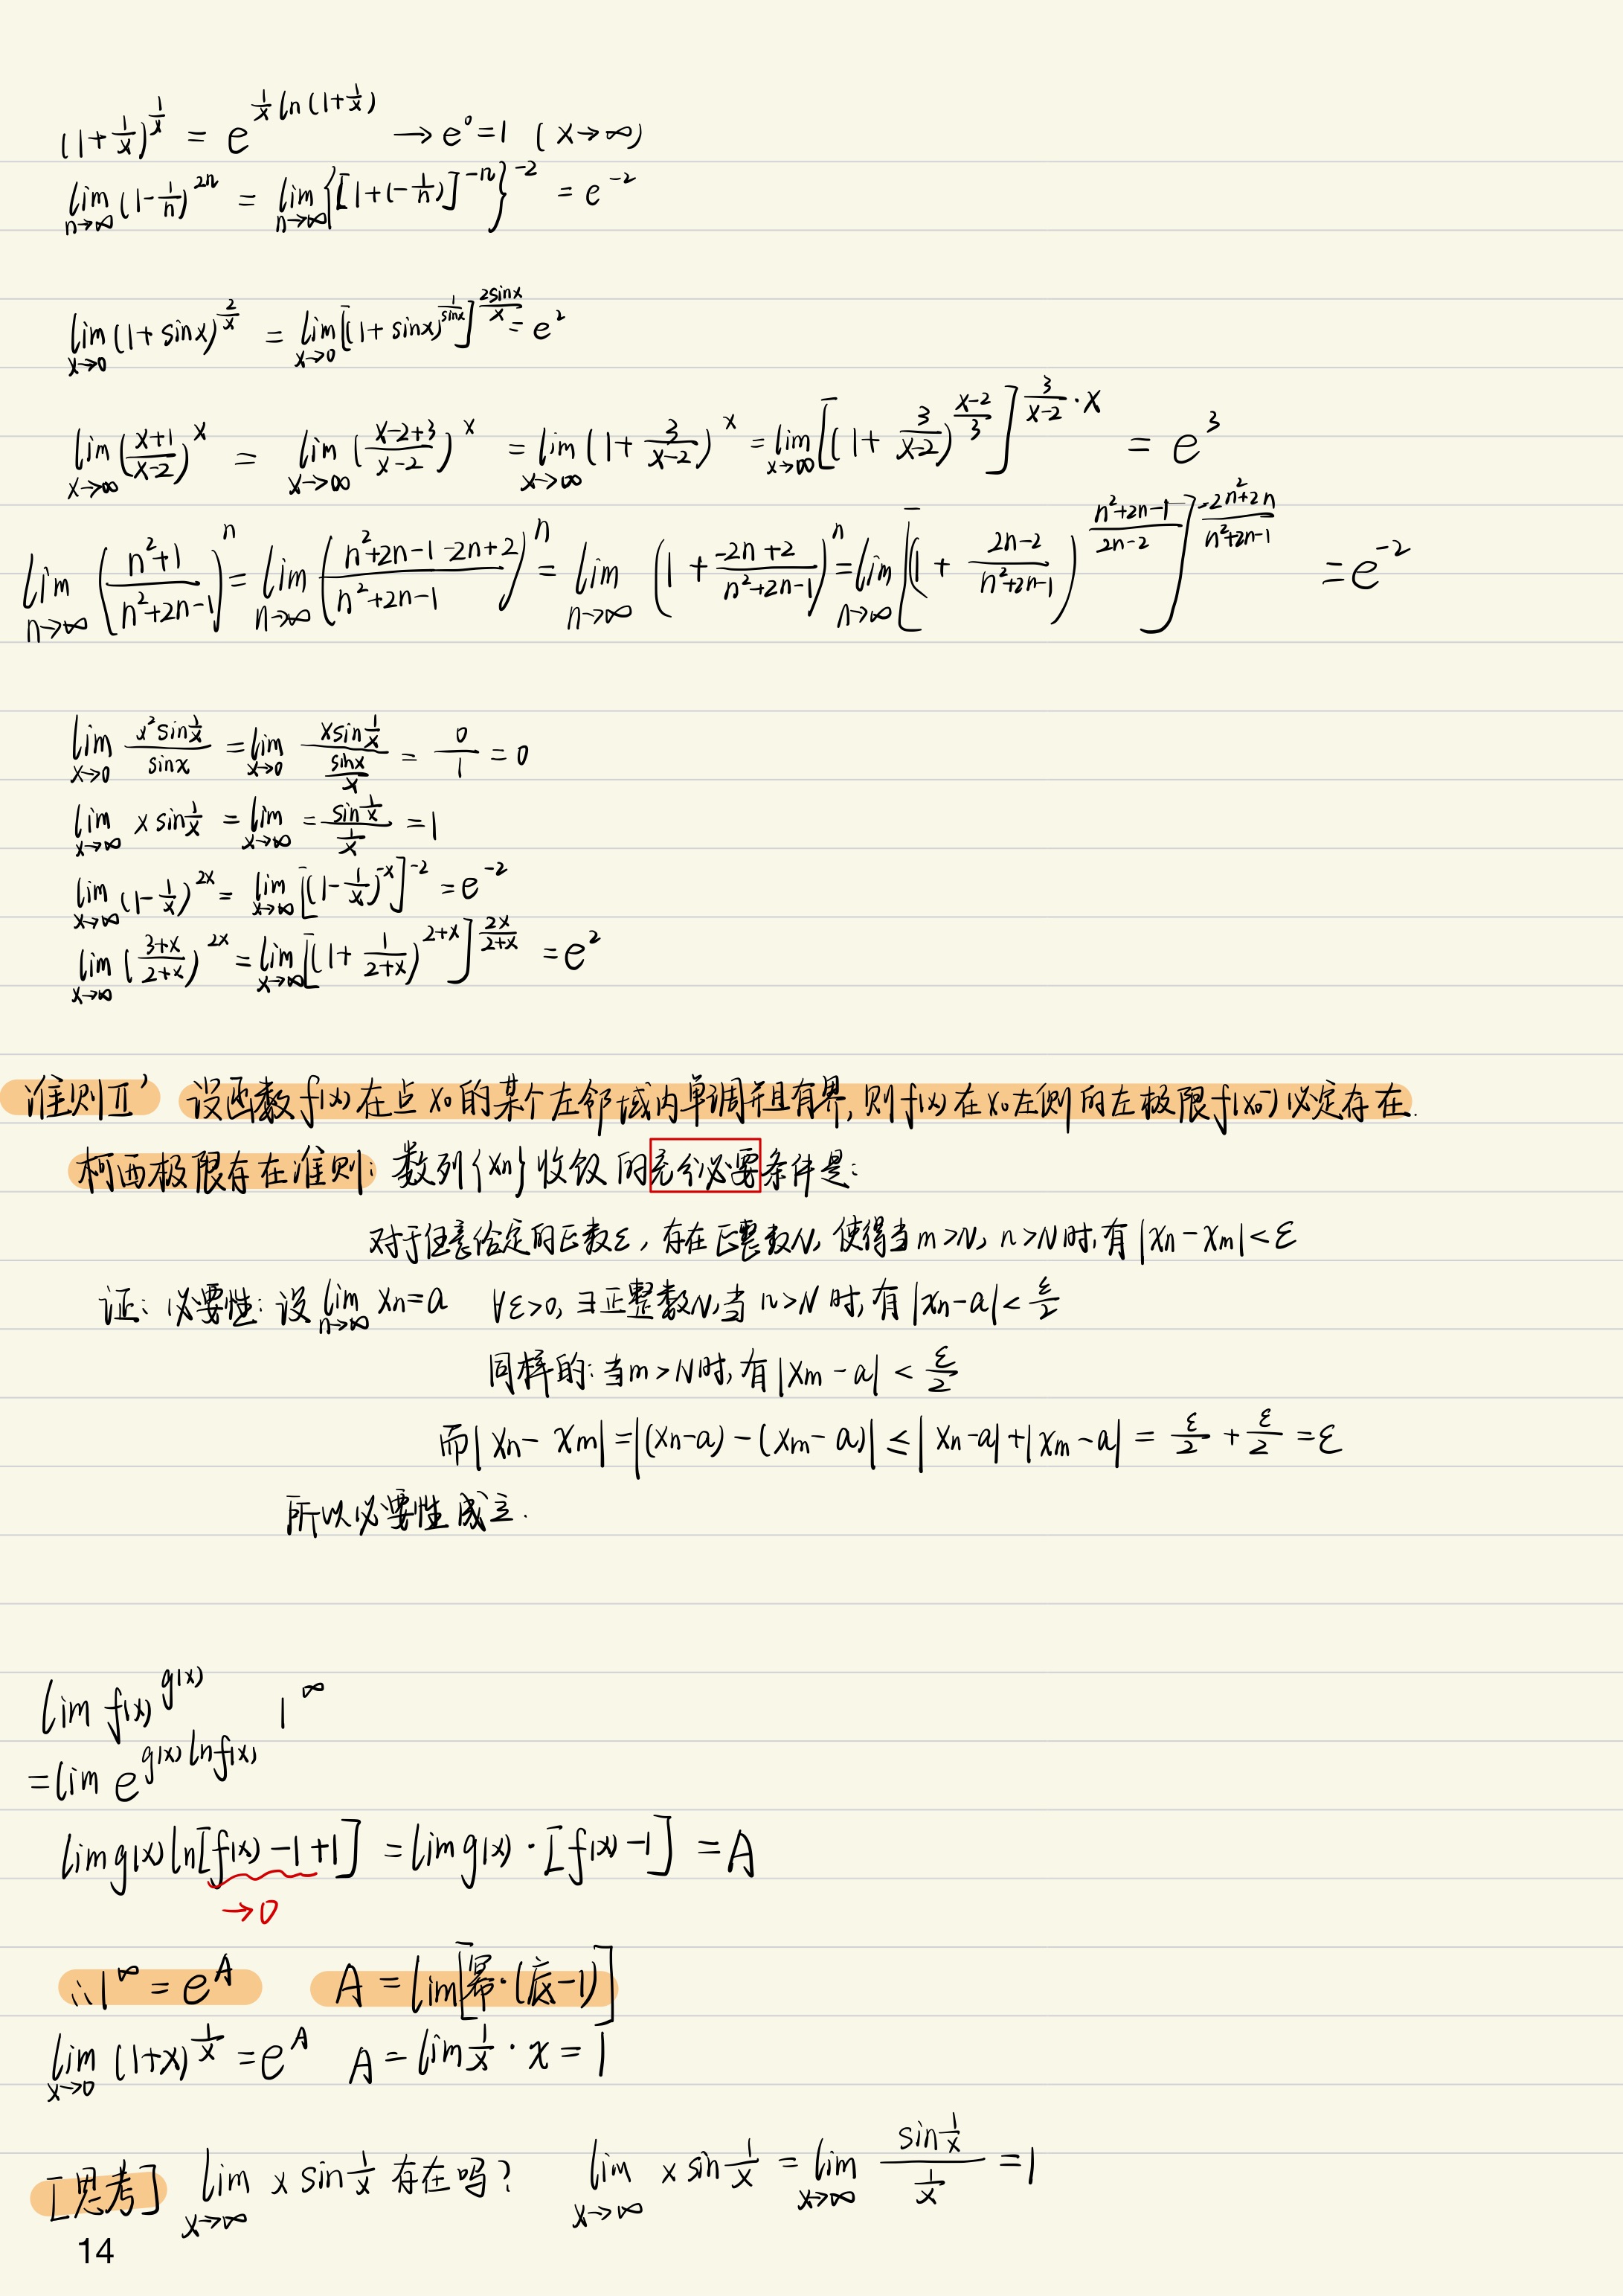 (1+1/x)^(1/x) = e^(1/x ln(1+1/x)) → e^0 = 1 (x→∞)
lim_{n→∞} (1-1/n)^(2n) = lim_{n→∞} {[1+(-1/n)]^(-n)}^(-2) = e^(-2)
lim_{x→0} (1+sinx)^(2/x) = lim_{x→0} [(1+sinx)^(1/sinx)]^(2sinx/x) = e^2
lim_{x→∞} ((x+1)/(x-2))^x = lim_{x→∞} ((x-2+3)/(x-2))^x = lim_{x→∞} (1+3/(x-2))^x = lim_{x→∞} [(1+3/(x-2))^((x-2)/3)]^(3/(x-2)·x) = e^3
lim_{n→∞} ((n^2+1)/(n^2+2n-1))^n = lim_{n→∞} ((n^2+2n-1-2n+2)/(n^2+2n-1))^n = lim_{n→∞} (1+(-2n+2)/(n^2+2n-1))^n = lim_{n→∞} [(1+(2n-2)/(n^2+2n-1))^((n^2+2n-1)/(2n-2))]^((-2n^2+2n)/(n^2+2n-1)) = e^(-2)
lim_{x→0} (x^2 sin(1/x))/(sinx) = lim_{x→0} (x sin(1/x))/(sinx/x) = 0/1 = 0
lim_{x→∞} x sin(1/x) = lim_{x→∞} = (sin(1/x))/(1/x) = 1
lim_{x→∞} (1-1/x)^(2x) = lim_{x→∞} [(1-1/x)^(-x)]^(-2) = e^(-2)
lim_{x→∞} ((3+x)/(2+x))^(2x) = lim_{x→∞} [(1+1/(2+x))^(2+x)]^(2x/(2+x)) = e^2
准则Ⅱ' 设函数f(x)在点x₀的某个左邻域内单调并且有界,则f(x)在x₀左侧的左极限f(x₀⁻)必定存在.
柯西极限存在准则: 数列{xn}收敛的充分必要条件是:
对于任意给定的正数ε, 存在正整数N, 使得当m>N, n>N时,有|xn-xm|<ε
证: 必要性: 设 lim_{n→∞} xn=a ∀ε>0, ∃正整数N,当n>N时,有|xn-a|<ε/2
同样的: 当m>N时,有|xm-a|<ε/2
而|xn-xm|=|(xn-a)-(xm-a)|≤|xn-a|+|xm-a|=ε/2+ε/2=ε
所以必要性成立.
lim f(x)^(g(x)) 1^∞
=lim e^(g(x)lnf(x))
lim g(x)ln[f(x)-1+1] = lim g(x)·[f(x)-1] = A
→0
∴1^∞ = e^A A = lim[幂·(底-1)]
lim_{x→0} (1+x)^(1/x) = e^A A = lim 1/x · x = 1
[思考] lim_{x→∞} x sin(1/x) 存在吗? lim_{x→∞} x sin(1/x) = lim_{x→∞} (sin(1/x))/(1/x) = 1
14